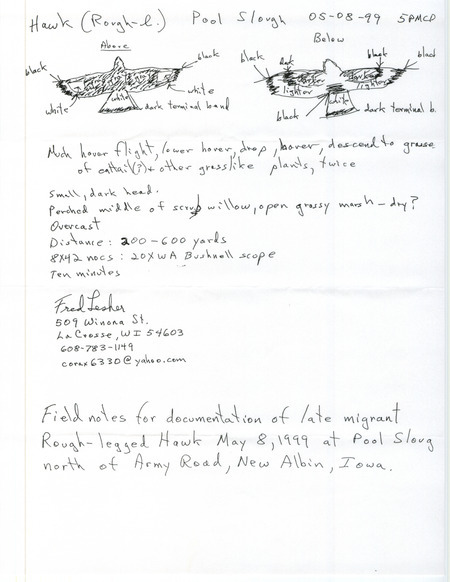 Hawk (Rough-l.) Pool Slough 05-08-99 5PMCD
Above
Below
black
black
white
white
white
dark terminal band
black
dark
black
black
darker
lighter
darker
lighter
black
white
dark terminal b.
Much hover flight, lower hover, drop, hover, descend to grasse
of cattail(?) + other grasslike plants, twice
Small, dark head.
Perched middle of scrub willow, open grassy marsh - dry?
Overcast
Distance: 200-600 yards
8X42 nocs: 20XWA Bushnell scope
Ten minutes
Fred Lesher
509 Winona St.
La Crosse, WI 54603
608-783-1149
corax6330@yahoo.com
Field notes for documentation of late migrant
Rough-legged Hawk May 8, 1999 at Pool Sloug
north of Army Road, New Albin, Iowa.